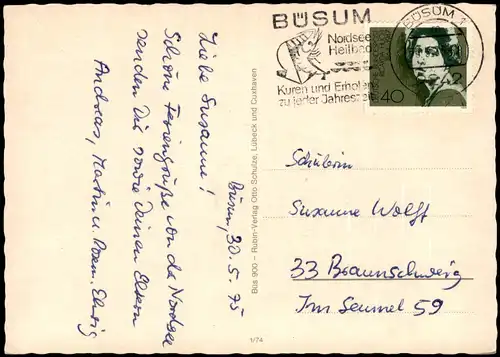 Büsum, 30. 5. 75
Liebe Susanne!
Schöne Feriengrüße von der Nordsee
senden Dir sowie Deinen Eltern
Andreas, Martin u.
Büs 900 – Rubin-Verlag Otto Schulze, Lübeck und Cuxhaven
1/74
BÜSUM
Nordsee
Heilbad
Kuren und Erholen
zu jeder Jahreszeit
BÜSUM 1
2242
40
Schülerin
Susanne Wolff
33 Braunschweig
Im Seumel 59